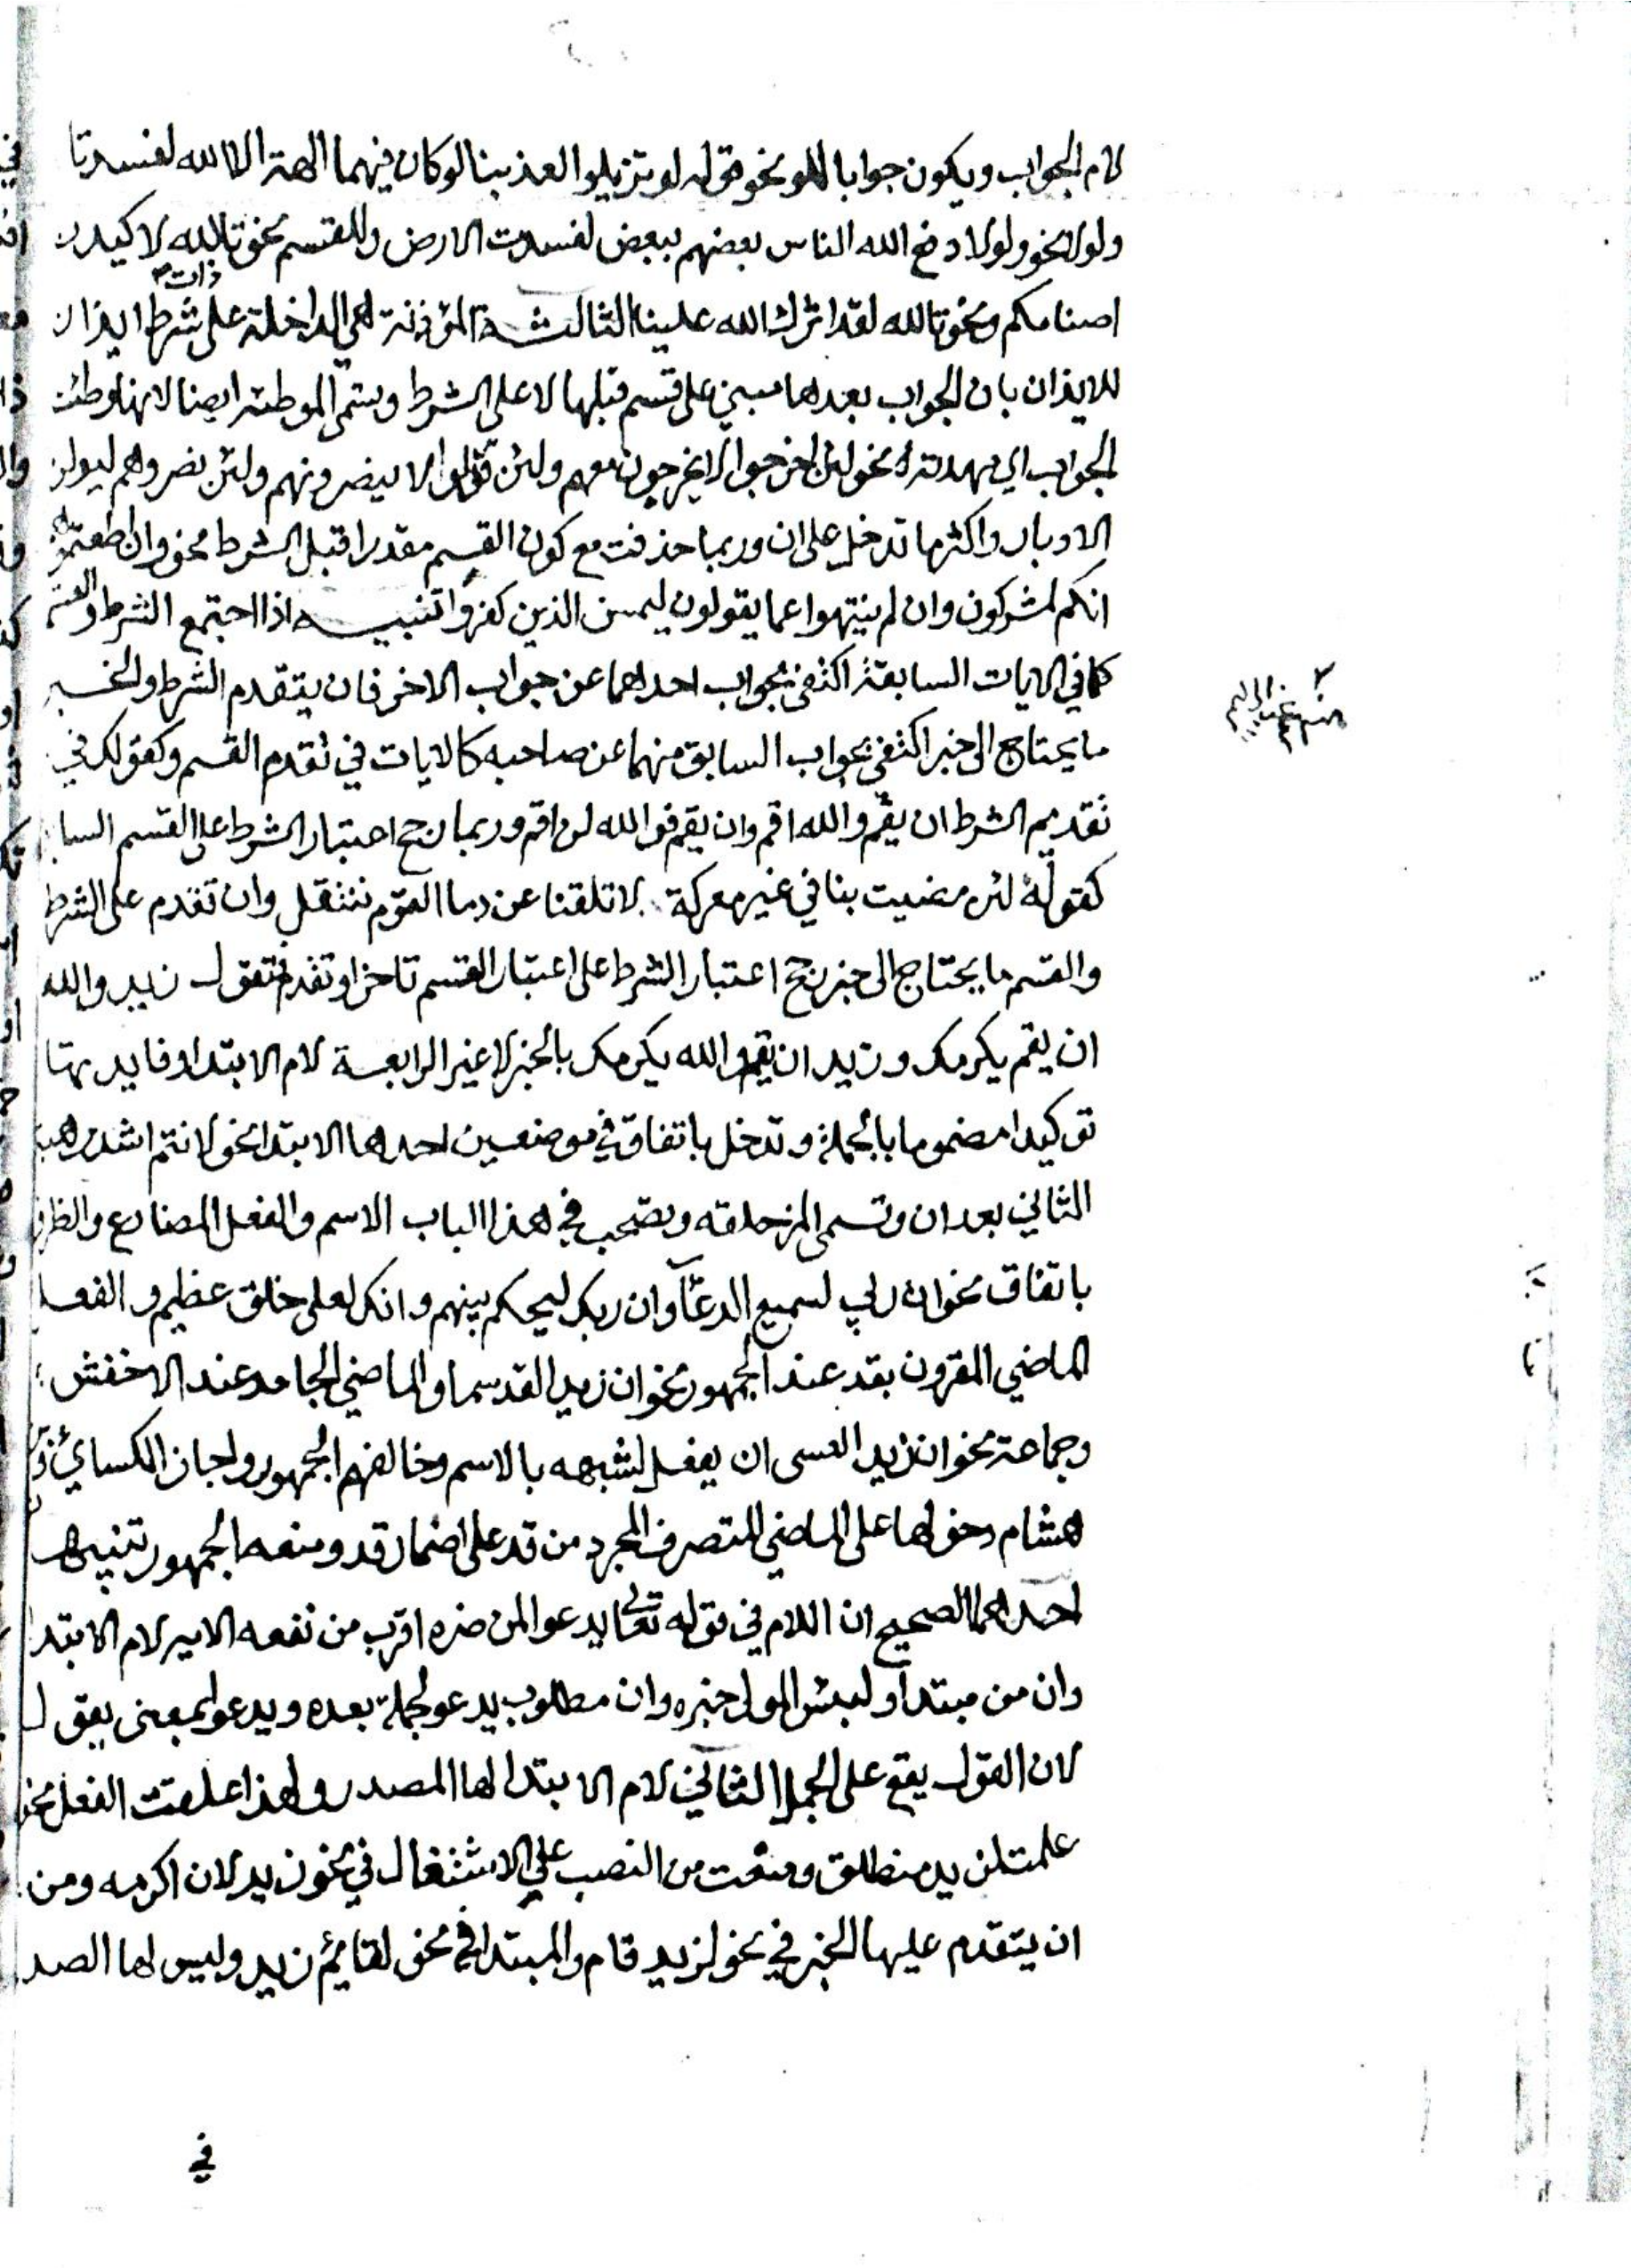 لام الجواب ويكون جوابا للو نحو قوله لو تزيلوا لعذبنا لو كان فيهما الهة الا الله لفسدتا
ولولا نحو ولولا دفع الله الناس بعضهم ببعض لفسدت الارض وللقسم نحو تالله لاكيدن
اصنامكم ونحو تالله لقد اثرك الله علينا الثالثة المؤذنة هي الداخلة على ذات شرط ايذان
للايذان بان الجواب بعدها مبني على قسم قبلها لا على الشرط وتسمى الموطئة ايضا لانها وطئت
الجواب اي مهدته نحو لئن اخرجوا لا يخرجون معهم ولئن قوتلوا لا ينصرونهم ولئن نصروهم ليولن
الادبار واكثر ما تدخل على ان وربما حذفت مع كون القسم مقدرا قبل الشرط نحو وان اطعتموهم
انكم لمشركون وان لم ينتهوا عما يقولون ليمسن الذين كفروا تنبيه اذا اجتمع الشرط والقسم
كما في الايات السابقة اكتفى بجواب احداهما عن جواب الاخر فان يتقدم الشرط والخبر
ما يحتاج الى خبر اكتفى بجواب السابق منهما عن صاحبه كالايات في تقدم القسم وكقولك في
تقديم الشرط ان يقم والله اقم وان يقم فوالله لن اقم وربما رجح اعتبار الشرط على القسم السابق
كقوله لئن منيت بنا في غير معركة لا تلفنا عن دما القوم ننتفل وان تقدم على الشرط
والقسم ما يحتاج الى خبر رجح اعتبار الشرط على اعتبار القسم تاخر او تقدم فتقول زيد والله
ان يقم يكرمك وزيد ان يقم والله يكرمك بالخبر لا غير الرابعة لام الابتدا وفايدتها
توكيدا مضموما بالجملة وتدخل باتفاق في موضعين احدها الابتدا نحو لانتم اشد رهبة
الثاني بعد ان وتسمى المزحلقه وتصحب في هذا الباب الاسم والفعل المضارع والظرف
باتفاق نحو ان ربي لسميع الدعآ وان ربك ليحكم بينهم وانك لعلى خلق عظيم والفعل
الماضي المقرون بقد عند الجمهور نحو ان زيدا لقد سما والماضي الجامد عند الاخفش
وجماعة نحو ان زيدا لعسى ان يفعل لشبهه بالاسم وخالفهم الجمهور واجاز الكسائي
هشام دخولها على الماضي المتصرف المجرد من قد على اضمار قد ومنعه الجمهور تنبيها
احداهما الصحيح ان اللام في قوله تعالى يدعوا لمن ضره اقرب من نفعه الاية لام الابتدا
وان من مبتدا ولبئس المولى خبره وان مطلوب يدعو لجملة بعده ويدعو بمعنى يقول
لان القول يقع على الجمل الثاني لام الابتدا لها المصدر ولهذا علقت الفعل نحو
علمت لزيد منطلق ومنعت من النصب على الاشتغال في نحو زيد لانا اكرمه ومن
ان يتقدم عليها الخبر في نحو لزيد قام والمبتدا في نحو لقايم زيد وليس لها الصد
في